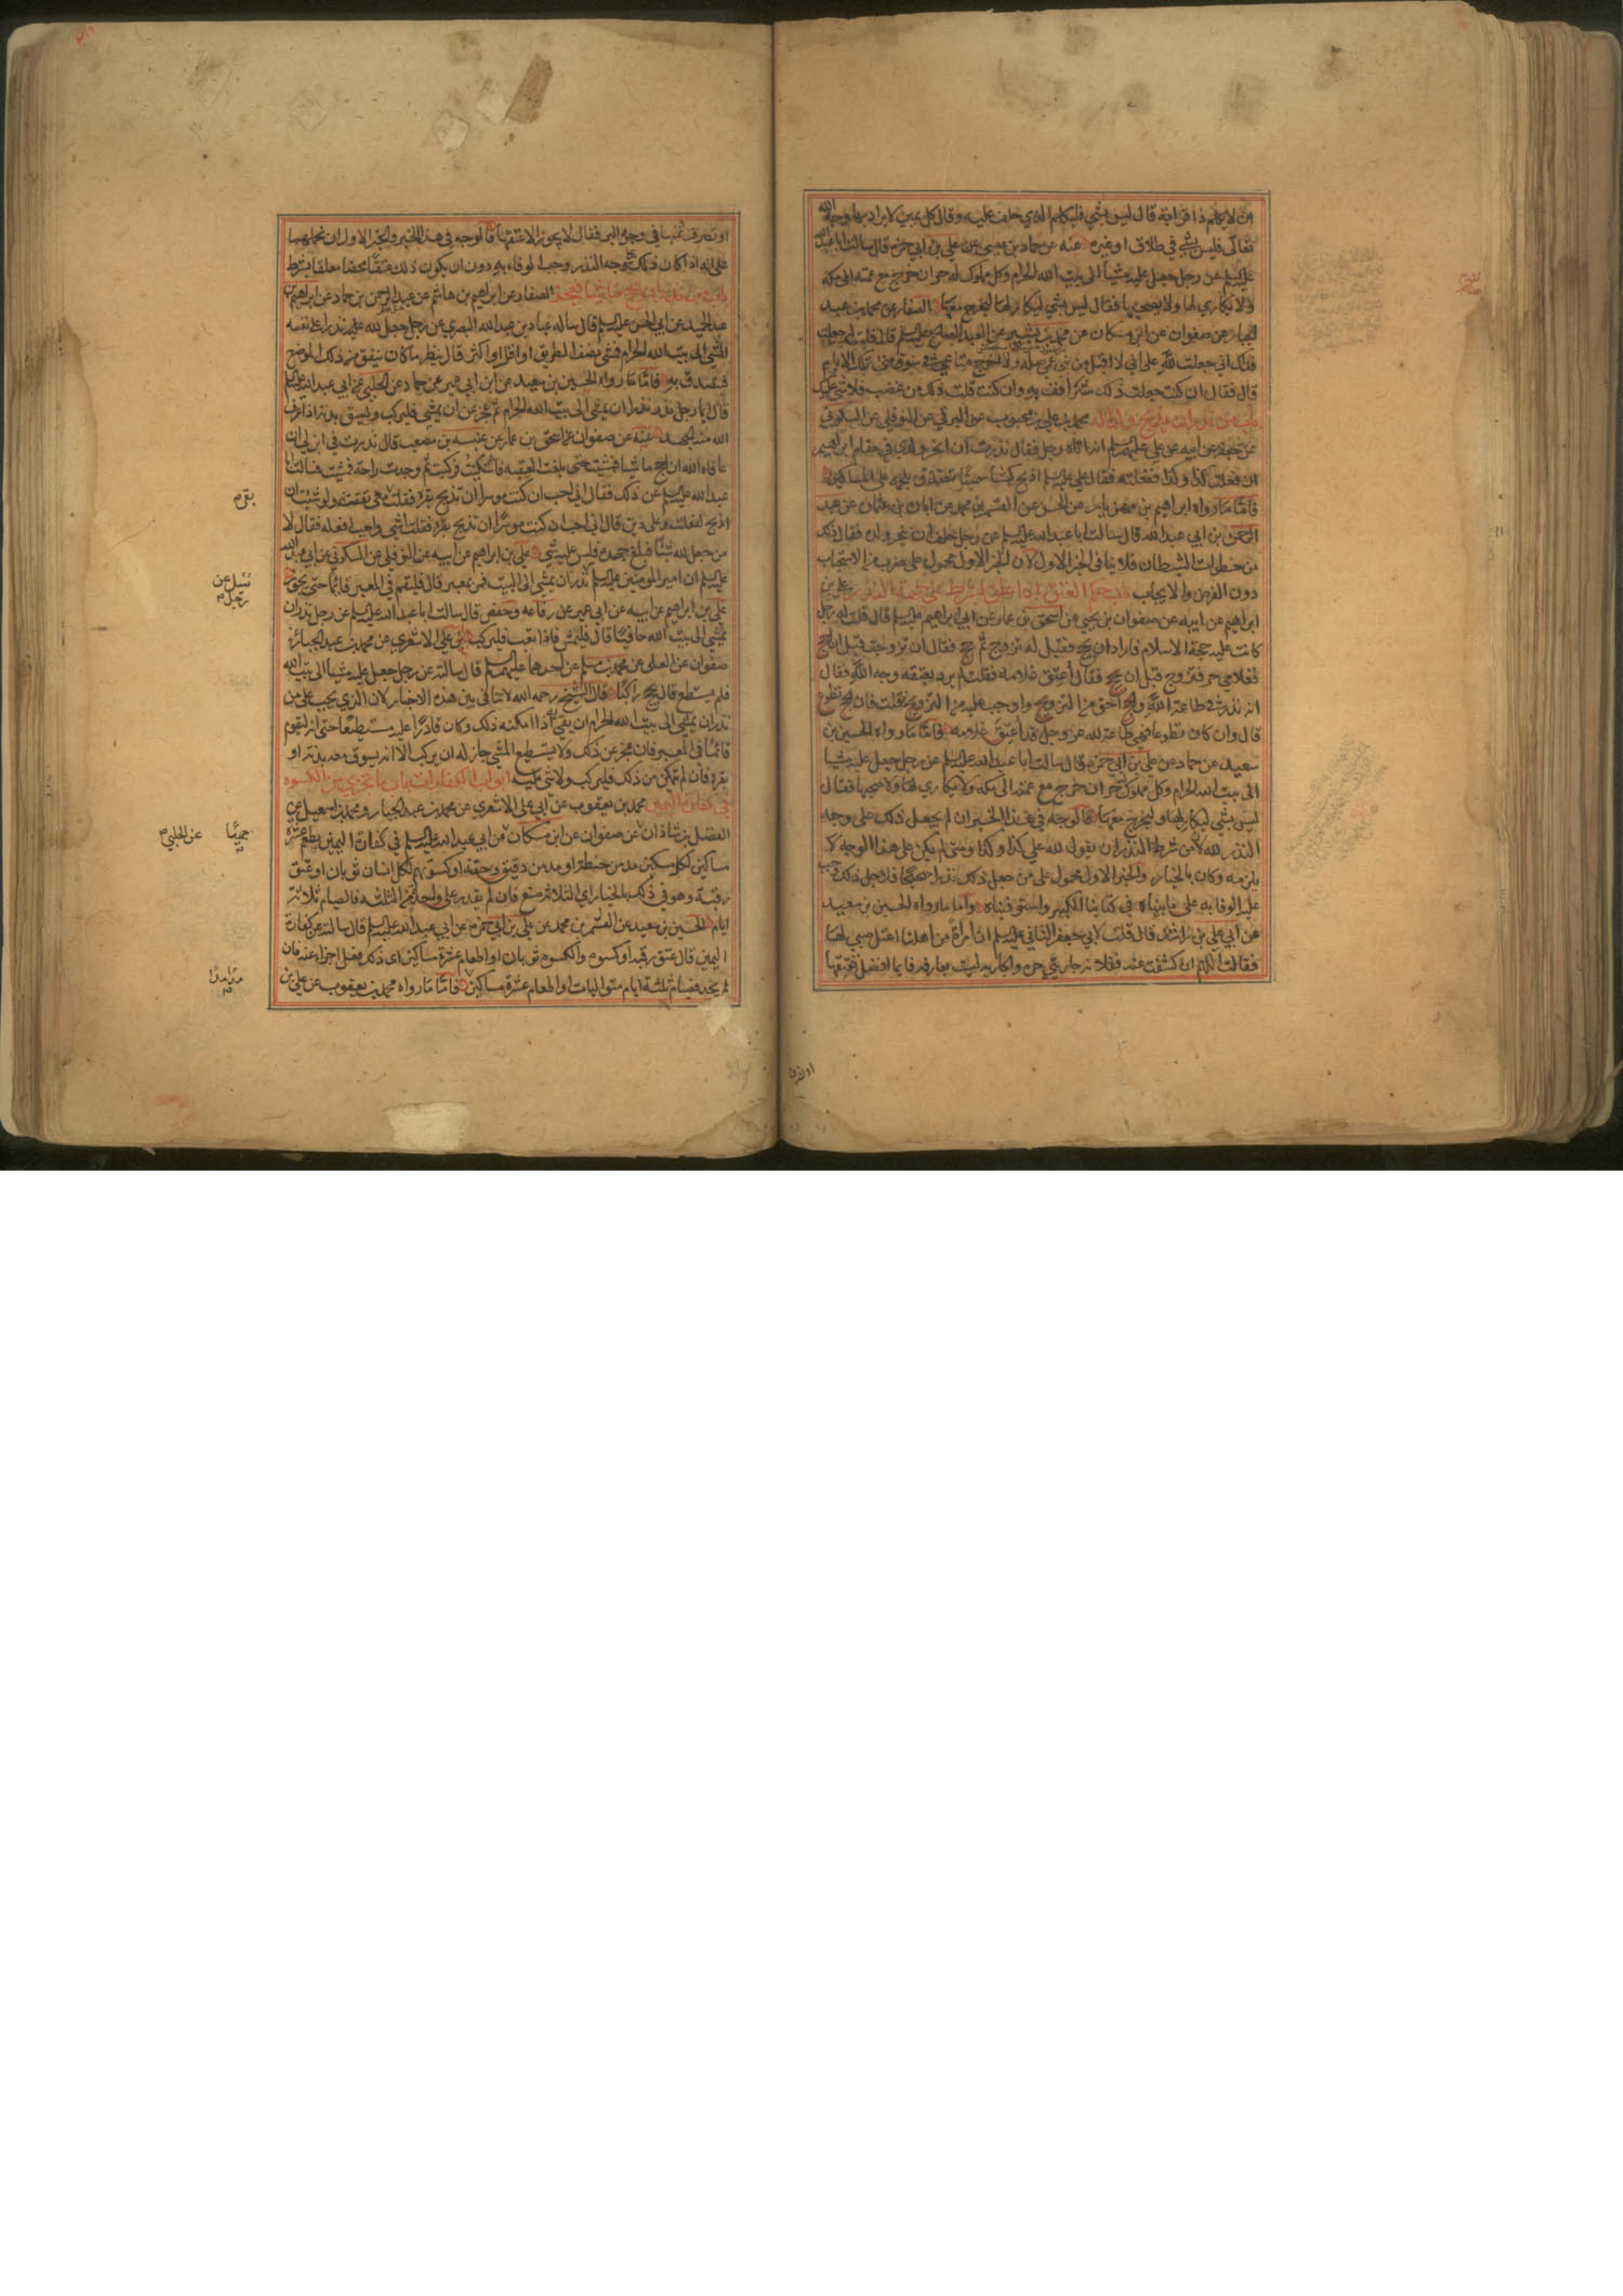 ان لا يكلم ذا قرابة قال ليس بشي فليكلم الذي حلف عليه وقال كل يمين لا يراد بها وجه الله
تعالى فليس بشي في طلاق او غيره عنه عن حماد بن عيسى عن علي بن ابي حمزه قال سالت ابا عبد الله
عليه السلم عن رجل جعل عليه مشيا الى بيت الله الحرام وكل مملوك له حر ان خرج مع عمته الى مكه
ولا يكاري لها ولا يصحبها فقال ليس بشي ليكاري لها وليخرج معها الصفار عن محمد بن عبد
الجبار عن صفوان عن ابن مسكان عن محمد بن بشير عن العبد الصالح عليه السلم قال قلت له جعلت
فداك اني جعلت لله علي اني لا اقبل من بني عمي صلة ولا اخرج متاعي في سوق منى تلك الايام
قال فقال ان كنت جعلت ذلك شكرا فف به وان كنت قلت ذلك من غضب فلا شي عليك
باب من نذر ان يذبح ولدا له محمد بن علي بن محبوب عن البرقي عن النوفلي عن السكوني
عن جعفر عن ابيه عن علي عليهم السلم انه اتاه رجل فقال نذرت ان انحر ولدي في مقام ابراهيم
ان فعلت كذا وكذا ففعلته فقال علي عليه السلم اذبح كبشا سمينا تتصدق بلحمه على المساكين
فاما ما رواه ابراهيم بن مهزيار عن الحسن عن القسم بن محمد عن ابان بن عثمان عن عبد
الرحمن بن ابي عبد الله قال سالت ابا عبد الله عليه السلم عن رجل حلف ان ينحر ولده فقال ذلك
من خطوات الشيطان فلا ينافي الخبر الاول لان الخبر الاول محمول على ضرب من الاستحباب
دون الفرض والايجاب باب حكم العتق اذا علق بشرط على جهة النذر علي بن
ابراهيم عن ابيه عن صفوان بن يحيى عن اسحق بن عمار عن ابي ابراهيم عليه السلم قال قلت له رجل
كانت عليه حجة الاسلام فاراد ان يحج فقيل له تزوج ثم حج فقال ان تزوجت قبل ان احج
فغلامي حر فتزوج قبل ان يحج فقال اعتق غلامه فقلت لم يرد بعتقه وجه الله فقال
انه نذر في طاعة الله والحج احق من التزويج واوجب عليه من التزويج فقلت فان الحج تطوع
قال وان كان تطوعا فهي طاعة لله عز وجل قد اعتق غلامه فاما ما رواه الحسين بن
سعيد عن حماد عن علي بن ابي حمزة قال سالت ابا عبد الله عليه السلم عن رجل جعل عليه مشيا
الى بيت الله الحرام وكل مملوك حر ان خرج مع عمته الى مكه ولا يكاري لها ولا صحبها فقال
ليس بشي ليكاري لها وليخرج معها فالوجه في هذا الخبر ان لم يجعل ذلك على وجه
النذر لله لان من شرط النذر ان يقول لله علي كذا وكذا ومتى لم يكن على هذا الوجه لا
يلزمه وكان بالخيار والخبر الاول محمول على من جعل ذلك نذرا صحيحا فلاجل ذلك وجب
عليه الوفا به على ما بيناه في كتابنا الكبير واستوفيناه واما ما رواه الحسين بن سعيد
عن ابي علي بن راشد قال قلت لابي جعفر الثاني عليه السلم ان امراة من اهلنا اعتل صبي لها
فقالت اللهم ان كشفت عنه ففلانة جاريتي حرة والجارية ليست بعارفة فايما افضل تعتقها
او تصرف
او تصرف ثمنها في وجه البر فقال لا يجوز الا عتقها فالوجه في هذا الخبر والخبر الاول ان نحملهما
على انه اذا كان ذلك على وجه النذر وجب الوفاء به دون ان يكون ذلك عتقا محضا معلقا بشرط
الصفار عن ابراهيم بن هاشم عن عبد الرحمن بن حماد عن ابراهيم بن
عبد الحميد عن ابي الحسن عليه السلم قال ساله عباد بن عبد الله البصري عن رجل جعل لله عليه نذرا على نفسه
المشي الى بيت الله الحرام فمشى نصف الطريق او اقل او اكثر قال ينظر ما كان ينفق من ذلك الموضع
فيتصدق به فاما ما رواه الحسين بن سعيد عن ابن ابي عمير عن حماد عن الحلبي عن ابي عبد الله عليه السلم
قال ايما رجل نذر نذرا ان يمشي الى بيت الله الحرام ثم عجز عن ان يمشي فليركب وليسق بدنة اذا عرف
الله منه الجهد عنه عن صفوان عن اسحق بن عمار عن عنبسه بن مصعب قال نذرت في ابن لي ان
عافاه الله ان احج ماشيا فمشيت حتى بلغت العقبه فاشتكيت فركبت ثم وجدت راحة فمشيت فسالت ابا
عبد الله عليه السلم عن ذلك فقال اني احب ان كنت موسرا ان تذبح بقرة فقلت معي نفقة ولو شئت ان
اذبح لفعلت وعلي دين قال اني احب ان كنت موسرا ان تذبح بقرة فقلت اشي واجب افعله فقال لا
من جعل لله شيئا فبلغ جهده فليس عليه شي علي بن ابراهيم عن ابيه عن النوفلي عن السكوني عن ابي عبد الله
عليه السلم ان امير المومنين عليه السلم نذر ان يمشي الى البيت فمر بمعبر قال فليقم في المعبر قائما حتى يجوز
علي بن ابراهيم عن ابيه عن ابي عمير عن رفاعه وحفص قال سالت ابا عبد الله عليه السلم عن رجل نذر ان
يمشي الى بيت الله حافيا قال فليمش فاذا تعب فليركب ابو علي الاشعري عن محمد بن عبد الجبار عن
صفوان عن العلى عن محمد بن مسلم عن احدهما عليهما السلم قال سالته عن رجل جعل عليه مشيا الى بيت الله
فلم يستطع قال يحج راكبا قال الشيخ رحمه الله لا تنافي بين هذه الاخبار لان الذي يجب على من
نذر ان يمشي الى بيت الله الحرام ان يفي به اذا امكنه ذلك وكان قادرا عليه مستطيعا حتى انه ليقوم
قائما في المعبر فان عجز عن ذلك ولا يستطيع المشي جاز له ان يركب الا انه يسوق معه بدنة او
بقرة فان لم يتمكن من ذلك فليركب ولا شي عليه ابواب الكفارات باب ما يجزي من الكسوه
في كفارة اليمين محمد بن يعقوب عن ابي علي الاشعري عن محمد بن عبد الجبار ومحمد بن اسمعيل عن
الفضل بن شاذان عن صفوان عن ابن مسكان عن ابي عبد الله عليه السلم في كفارة اليمين يطعم عشرة
مساكين لكل مسكين مد من حنطة او مد من دقيق وحفنة او كسوتهم لكل انسان ثوبان او عتق
رقبة وهو في ذلك بالخيار اي الثلاثة صنع فان لم يقدر على واحدة من الثلثة فالصيام ثلاثة
ايام الحسين بن سعيد عن القسم بن محمد عن علي بن ابي حمزه عن ابي عبد الله عليه السلم قال سالته عن كفارة
اليمين قال عتق رقبة او كسوه والكسوه ثوبان او اطعام عشرة مساكين اي ذلك فعل اجزا عنه فان
لم يجد فصيام ثلثة ايام متواليات او اطعام عشرة مساكين فاما ما رواه محمد بن يعقوب عن علي بن
بقرم
سئل عن
رجل م
جميعا عن الحلبي م
مدا مدا